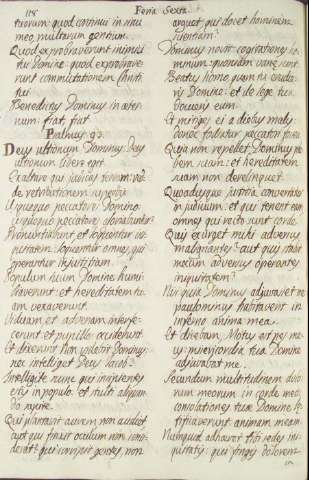 118
Feria Sexta.
tuorum: quod continui in sinu
meo multarum gentium.
Quod exprobraverunt inimici
tui Domine: quod exprobrave-
runt commutationem Christi
tui
Benedictus Dominus in æter-
num: fiat, fiat
Psalmus 93.
Deus ultionum Dominus Deus
ultionum libere egit
Exaltare qui judicas terram: redde
retributionem superbis
Usquequo peccatores Domine:
usquequo peccatores gloriabuntur?
Pronuntiabunt et loquentur ini-
quitatem: loquentur omnes, qui
operantur injustitiam
Populum tuum Domine humi-
liaverunt: et hereditatem tu-
am vexaverunt
Viduam, et advenam interfe-
cerunt: et pupillos occiderunt
Et dixerunt: Non videbit Dominus:
nec intelliget Deus Jacob
Intelligite nunc qui insipientes
estis in populo: et stulti aliquan-
do sapite.
Qui plantavit aurem non audiet?
aut qui finxit oculum non con-
siderat? qui corripit gentes, non
arguet: qui docet hominem
scientiam?
Dominus novit cogitationes ho-
minum: quoniam vanæ sunt
Beatus homo quem tu erudie-
ris Domine: et de lege tua
docueris eum
Et mitiges ei a diebus malis:
donec fodiatur peccatori fovea
Quia non repellet Dominus ple-
bem suam: et hereditatem
suam non derelinquet
Quoadusque justitia convertatur
in judicium: et qui juxta eam
omnes qui recto sunt corde.
Quis exurget mihi adversus
malignantes? aut quis stabit
mecum adversus operantes
iniquitatem?
Nisi quia Dominus adjuvit me
paulominus habitasset in
inferno anima mea.
Si dicebam, Motus est pes me-
us: misericordia tua Domine
adjuvabat me.
Secundum multitudinem dolo-
rum meorum in corde meo:
consolationes tuæ Domine læ-
tificaverunt animam meam
Numquid adhæret tibi sedes ini-
quitatis: qui fingis dolorem